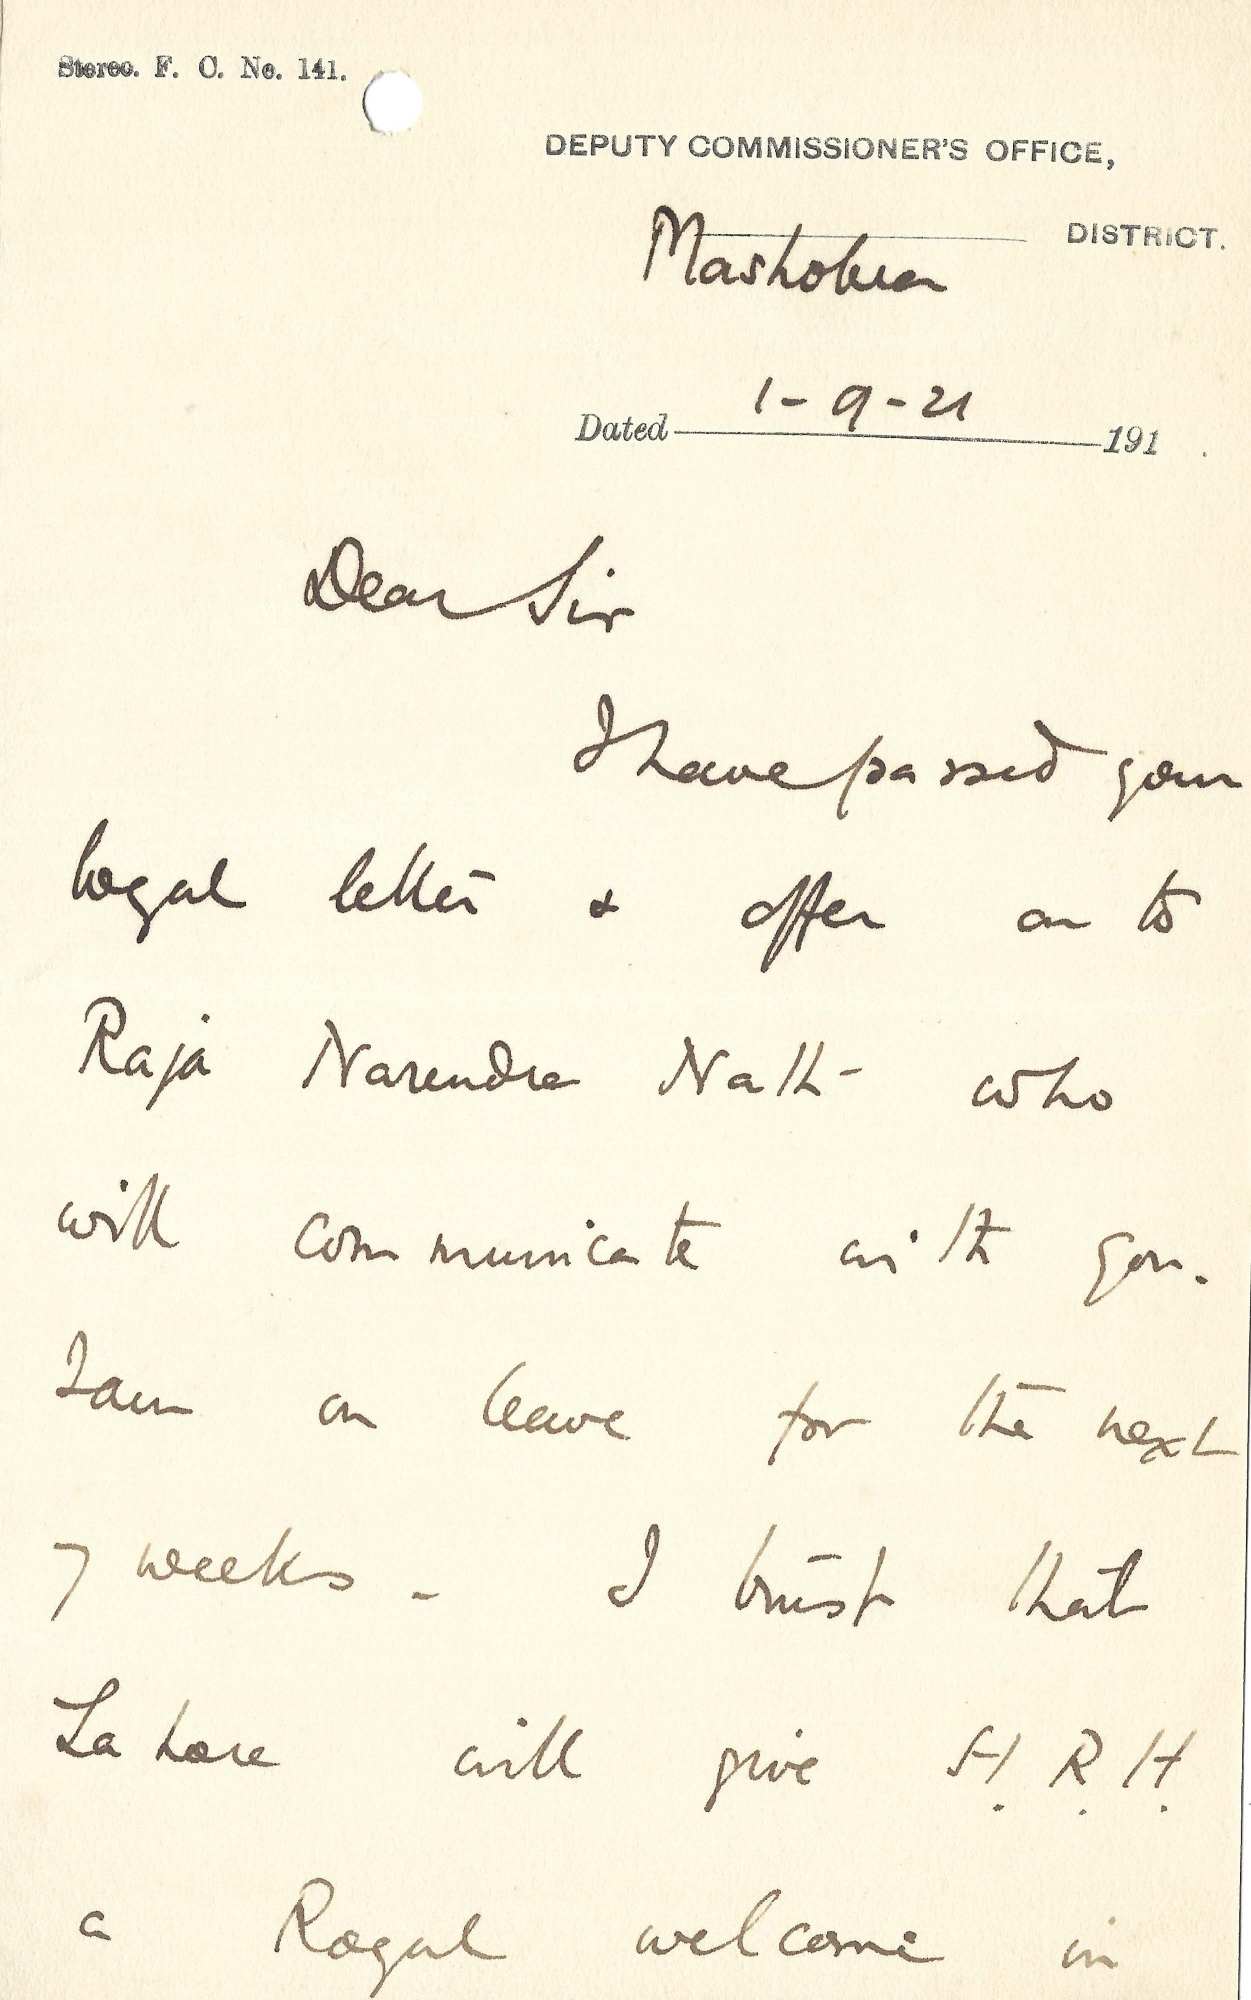 Stereo. F. C. No. 141.
DEPUTY COMMISSIONER'S OFFICE,
Mashobra DISTRICT.
Dated 1-9-21 191 .
Dear Sir
I have passed your
loyal letter & offer on to
Raja Narendra Nath - who
will communicate with you.
I am on leave for the next
7 weeks - I trust that
Lahore will give H.R.H.
a Royal welcome in